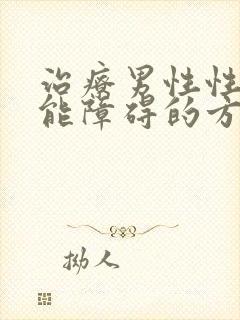 治疗男性性
能障碍的方
拗人